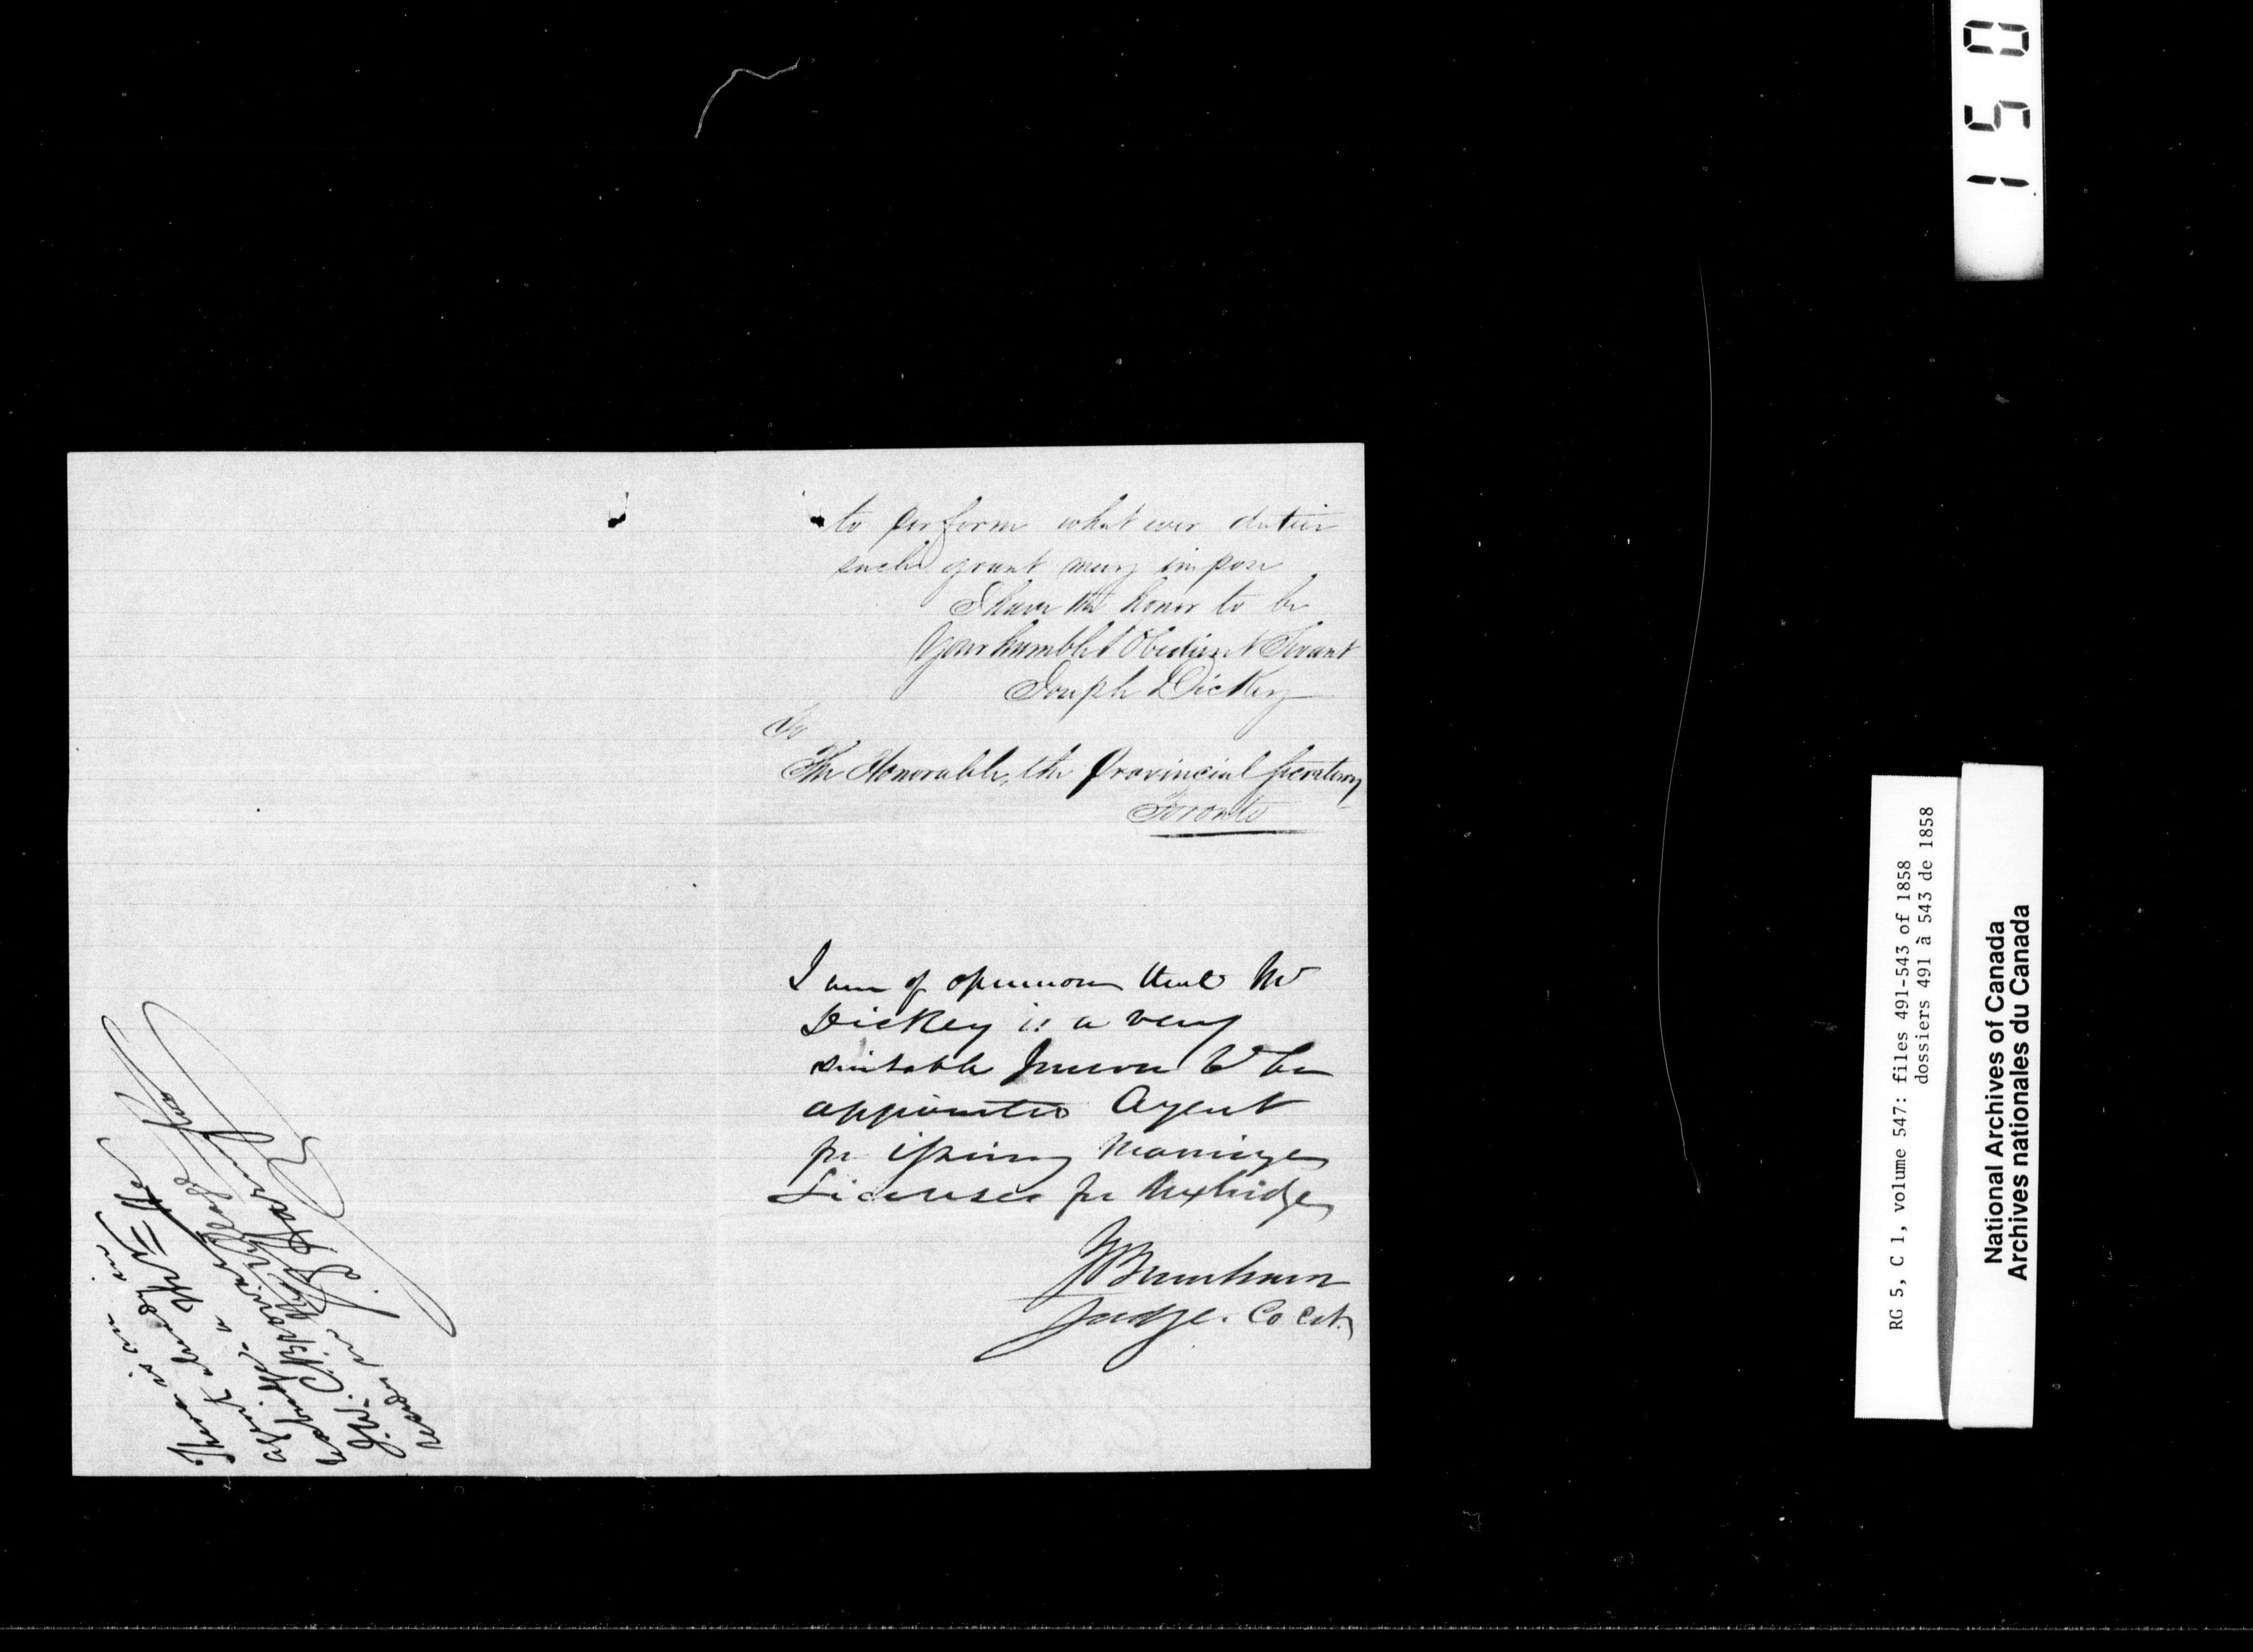 to perform what ever duties
such grant may impose
I have the honor to be
Your humble Obedient Servant
Joseph Dickey
To
The Honorable, the Provincial Secretary
Toronto
I am of opinion that Mr
Dickey is a very
suitable person to be
appointed Agent
for issuing Marriage
Licenses for Uxbridge
Burnham
Judge. Co Ct.
There is an
agent already in
a
150
RG 5, C 1, volume 547: files 491-543 of 1858
dossiers 491 à 543 de 1858
National Archives of Canada
Archives nationales du Canada